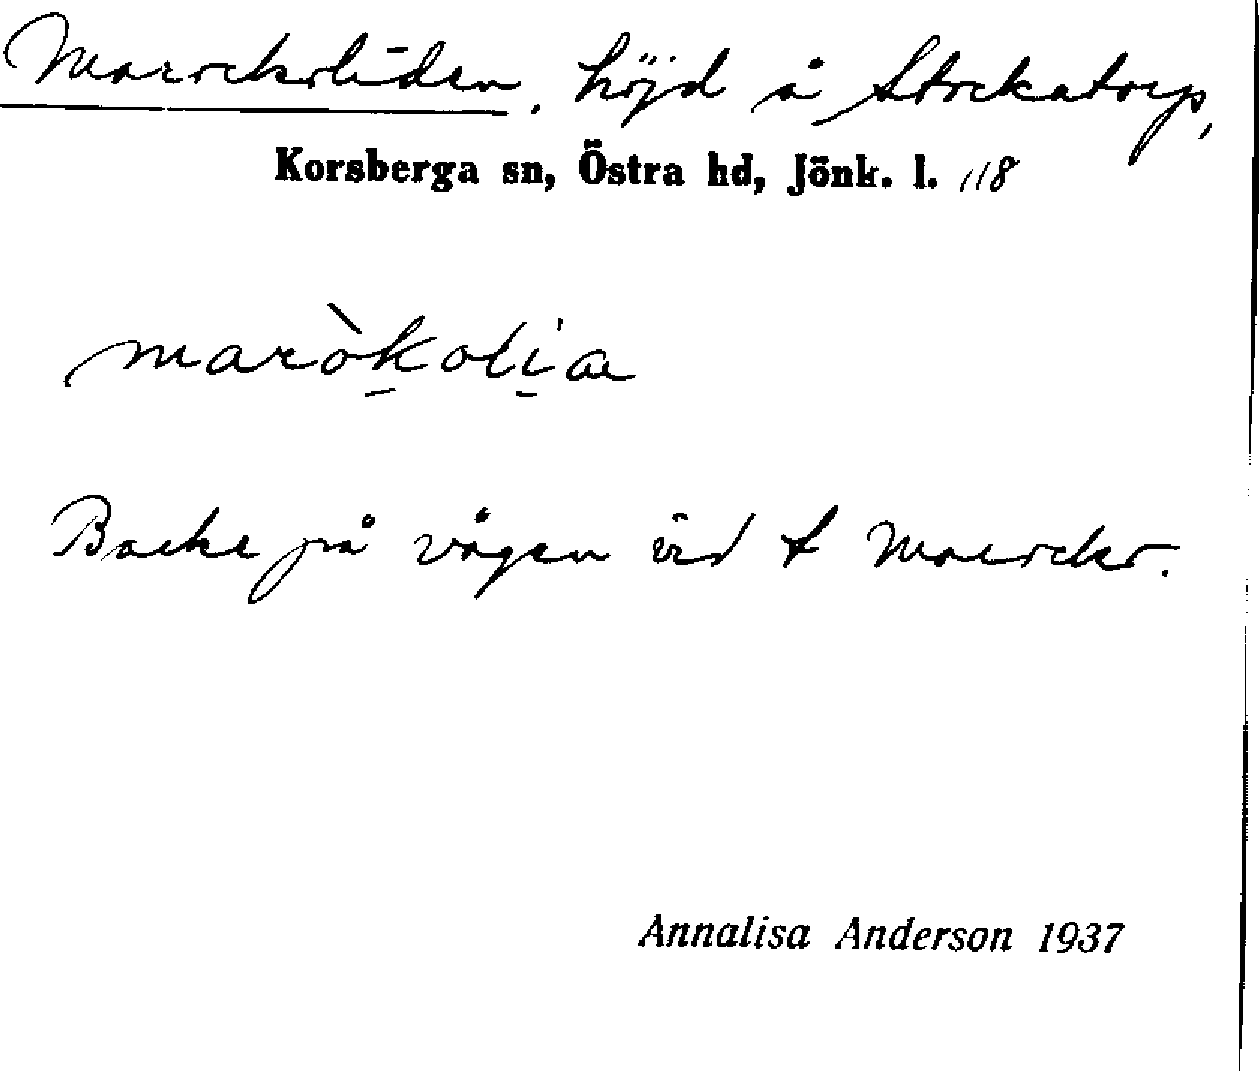 Marockoliden, höjd å Stockatorp,
Korsberga sn, Östra hd, Jönk. l. 118
maròkoli̱a
Backe på vägen vid t Marocko.
Annalisa Anderson 1937